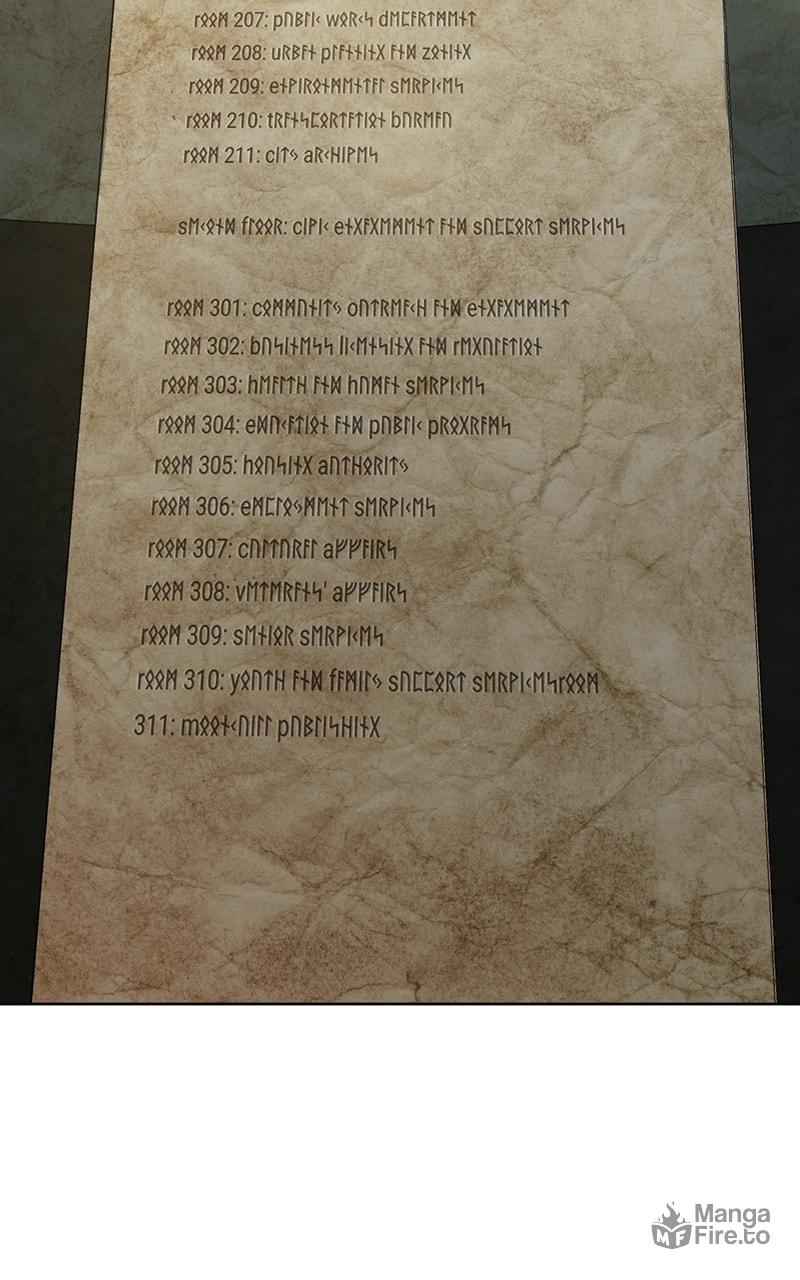 rᛟᛟᛗ 207: pᚢᛒᛚᛁᚲ wᛟᚱᚲᛋ dᛖᛈᚨᚱᛏᛗᛖᚾᛏ
rᛟᛟᛗ 208: uᚱᛒᚨᚾ pᛚᚨᚾᚾᛁᚾᚷ ᚨᚾᛞ zᛟᚾᛁᚾᚷ
rᛟᛟᛗ 209: eᚾᚹᛁᚱᛟᚾᛗᛖᚾᛏᚨᛚ sᛖᚱᚹᛁᚲᛖᛋ
rᛟᛟᛗ 210: tᚱᚨᚾᛋᛈᛟᚱᛏᚨᛏᛁᛟᚾ bᚢᚱᛖᚨᚢ
rᛟᛟᛗ 211: cᛁᛏᛃ aᚱᚲᚺᛁᚹᛖᛋ
sᛖᚲᛟᚾᛞ fᛚᛟᛟᚱ: cᛁᚹᛁᚲ eᚾᚷᚨᚷᛖᛗᛖᚾᛏ ᚨᚾᛞ sᚢᛈᛈᛟᚱᛏ sᛖᚱᚹᛁᚲᛖᛋ
rᛟᛟᛗ 301: cᛟᛗᛗᚢᚾᛁᛏᛃ oᚢᛏᚱᛖᚨᚲᚺ ᚨᚾᛞ eᚾᚷᚨᚷᛖᛗᛖᚾᛏ
rᛟᛟᛗ 302: bᚢᛋᛁᚾᛖᛋᛋ lᛁᚲᛖᚾᛋᛁᚾᚷ ᚨᚾᛞ rᛖᚷᚢᛚᚨᛏᛁᛟᚾ
rᛟᛟᛗ 303: hᛖᚨᛚᛏᚺ ᚨᚾᛞ hᚢᛗᚨᚾ sᛖᚱᚹᛁᚲᛖᛋ
rᛟᛟᛗ 304: eᛞᚢᚲᚨᛏᛁᛟᚾ ᚨᚾᛞ pᚢᛒᛚᛁᚲ pᚱᛟᚷᚱᚨᛗᛋ
rᛟᛟᛗ 305: hᛟᚢᛋᛁᚾᚷ aᚢᛏᚺᛟᚱᛁᛏᛃ
rᛟᛟᛗ 306: eᛗᛈᛚᛟᛃᛗᛖᚾᛏ sᛖᚱᚹᛁᚲᛖᛋ
rᛟᛟᛗ 307: cᚢᛚᛏᚢᚱᚨᛚ aᚠᚠᚨᛁᚱᛋ
rᛟᛟᛗ 308: vᛖᛏᛖᚱᚨᚾᛋ' aᚠᚠᚨᛁᚱᛋ
rᛟᛟᛗ 309: sᛖᚾᛁᛟᚱ sᛖᚱᚹᛁᚲᛖᛋ
rᛟᛟᛗ 310: yᛟᚢᛏᚺ ᚨᚾᛞ fᚨᛗᛁᛚᛃ sᚢᛈᛈᛟᚱᛏ sᛖᚱᚹᛁᚲᛖᛋrᛟᛟᛗ
311: mᛟᛟᚾᚲᚢᛁᛚᛚ pᚢᛒᛚᛁᛋᚺᛁᚾᚷ
Manga
Fire.to